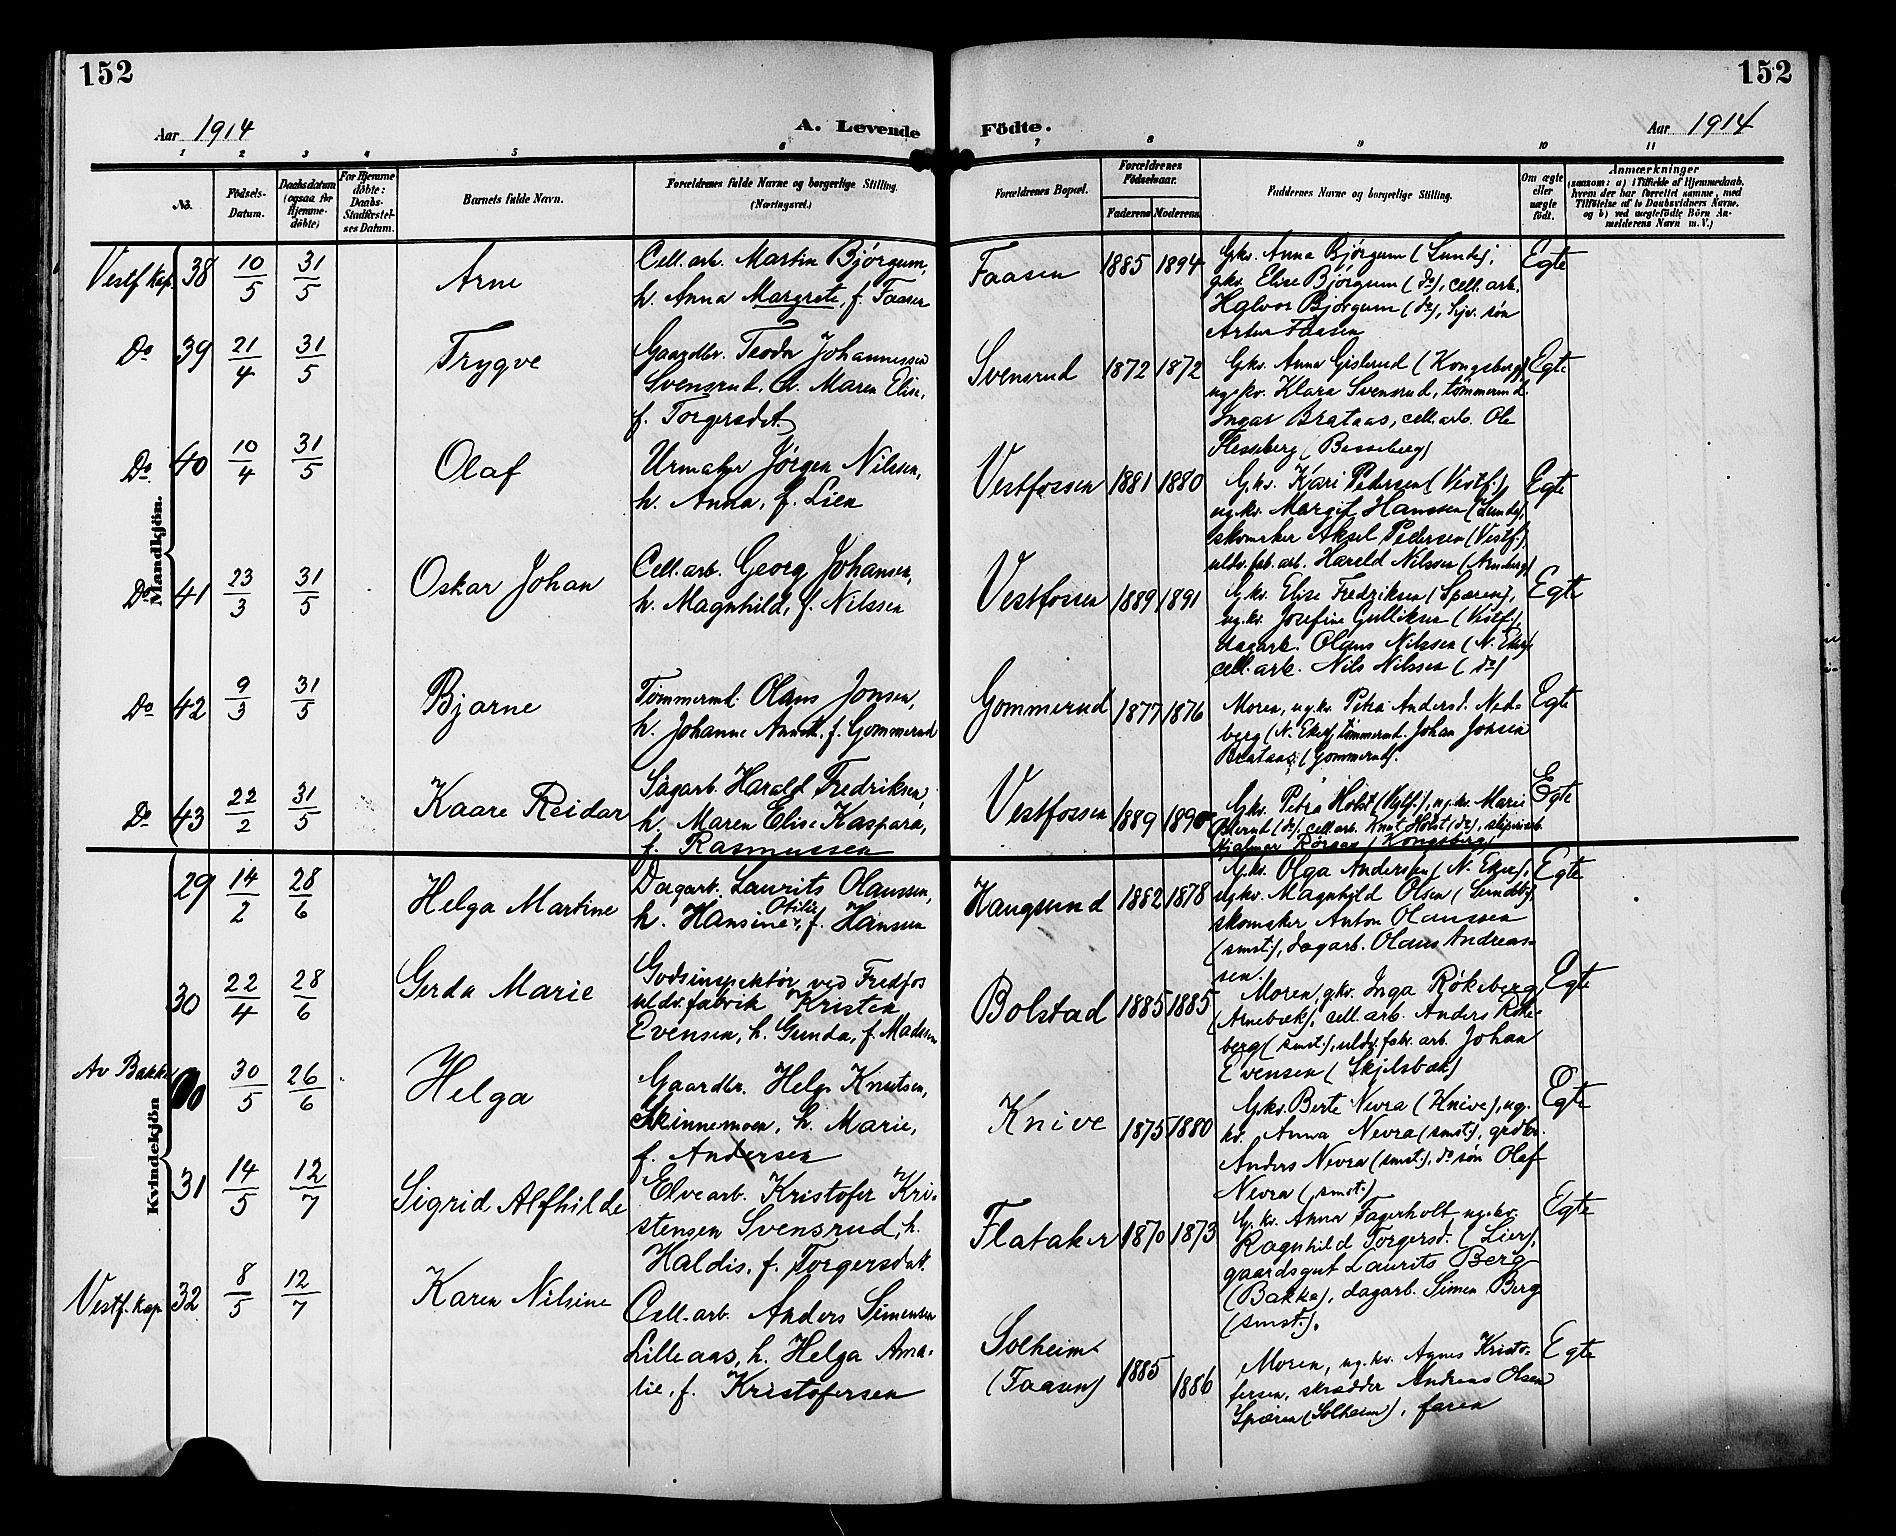 152
152
Aar 1914
A. Levende Födte.
Aar 1914
1 2 3 4 5 6 7 8 9 10 11
No.
Födsels-Datum.
Daabsdatum (ogsaa for Hjemme-döbte)
For Hjemme döbte: Daabs-Stadfæstel-ses Datum.
Barnets fulde Navn.
Forældrenes fulde Navne og borgerlige Stilling. (Næringsvei.)
Forældrenes Bopæl.
Forældrenes Födselsaar.
Faderens Moderens
Faddernes Navne og borgerlige Stilling.
Om ægte eller uægte födt.
Anmærkninger
(saasom: a) i Tilfælde af Hjemmedaab.
hvem der har forrettet samme, med
Tilföielse af to Daabsvidners Navne.
og b) ved uegtefödte Börn An-
melderens Navn m. V.)
Mandkjön.
Vestf. kap. 38 10/5 31/5 Arne
Cell. arb. Martin Bjørgum,
h. Anna Margrete, f. Faasen
Faasen 1885 1894
Gkv. Anna Bjørgum (Lunde),
gkv. Elise Bjørgum (do), cell. arb.
Halvor Bjørgum (do), Sjv. søn
Artur Faasen
Egte
Do 39 21/4 31/5 Trygve
Gaardbr. Teodor Johannessen
Svensrud, h. Maren Elise,
f. Torgersdat.
Svensrud 1872 1872
Gkv. Anna Gislerud (Kongsberg)
ugkv. Klara Svensrud, tømmermd.
Ingar Brataas, cell. arb. Ole
Flesseberg (Besseberg)
Egte
Do 40 10/4 31/5 Olaf
Urmaker Jørgen Nilssen,
h. Anna, f. Lien
Vestfossen 1881 1880
Gkv. Kari Pedersen (Vestf.),
ugkv. Margit Hanssen (Lunde),
skomaker Aksel Pedersen (Vestf.),
uldv. fab. arb. Harald Nilssen
Egte
Do 41 23/3 31/5 Oskar Johan
Cell. arb. Georg Johansen,
h. Magnhild, f. Nilssen
Vestfossen 1889 1891
Gkv. Elise Fredriksen (Spæren),
ugkv. Josefine Gulliksen (Vestf.),
dagarb. Olaus Nilssen (N. Eker)
cell. arb. Nils Nilssen (do)
Egte
Do 42 9/3 31/5 Bjarne
Tømmermd. Olaus Jonsen,
h. Johanne Annet., f. Gommerud
Gommerud 1877 1876
Moren, ugkv. Petra Andersd. Ned-
berg (N. Eker), tømmermd. Johan Jonsen
Brataas (Gommerud).
Egte
Do 43 22/2 31/5 Kaare Reidar
Sagarb. Harald Fredriksen,
h. Maren Elise Kaspara,
f. Rasmussen
Vestfossen 1889 1890
Gkv. Petra Holst (Vestf.), ugkv. Marie
(do), cell. arb. Knut Holst (do),
Hjalmar Rörgen (Kongsberg)
Egte
Kvindekjön
29 14/2 28/6 Helga Martine
Dagarb. Laurits Olaussen,
h. Hansine Otilie, f. Hansen
Haugsund 1882 1878
Gkv. Olga Andersen (N. Eker),
ugkv. Magnhild Olsen
skomaker Anton Olaussen
(smst.), dagarb. Olaus Andreas-
sen.
Egte
30 22/4 28/6 Gerda Marie
Godsinspektør ved Fredfos
uldv. fabrik Kristen
Evensen, h. Gunda, f. Madsen
Bolstad 1885 1885
Moren, gkv. Inga Røkeberg
(Arnebæk), cell. arb. Anders Røke-
berg (smst.), uldv. fabr. arb. Johan
Evensen (Skjelsbæk)
Egte
Av Bakke 30/5 26/6 Helga
Gaardbr. Helge Knutsen
Skinnemoen, h. Marie,
f. Andersen
Knive 1875 1880
Gkv. Berte Nevra (Knive), ug.
kv. Anna Nevra (smst.), grdbr.
Anders Nevra (smst.), do søn Olaf
Nevra (smst.)
Egte
31 14/5 12/7 Sigrid Alfhilde
Elvearb. Kristofer Kri-
stensen Svensrud, h.
Haldis, f. Torgersdat.
Flataker 1870 1873
G. kv. Anna Fagerholt ugkv.
Ragnhild Torgersd. (Lier),
gaardsgut Laurits Berg
(Bakke), dagarb. Simen Berg
(smst.).
Egte
Vestf. kap. 32 8/5 12/7 Karen Nilsine
Cell. arb. Anders Simensen
Lilleaas, h. Helga Ama-
lie, f. Kristofersen
Solheim
(Faasen) 1885 1886
Moren, ug. kv. Agnes Kristo-
fersen, skrædder Andreas Olsen
Spæren (Solheim), faren
Egte